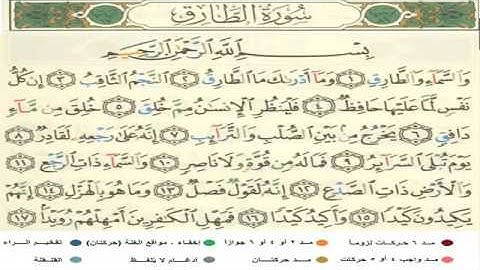 سُورَةُ الطَّارِقِ
بِسْمِ اللَّهِ الرَّحْمَٰنِ الرَّحِيمِ
وَالسَّمَاءِ وَالطَّارِقِ ١ وَمَا أَدْرَاكَ مَا الطَّارِقُ ٢ النَّجْمُ الثَّاقِبُ ٣ إِن كُلُّ
نَفْسٍ لَّمَّا عَلَيْهَا حَافِظٌ ٤ فَلْيَنظُرِ الْإِنسَانُ مِمَّ خُلِقَ ٥ خُلِقَ مِن مَّاءٍ
دَافِقٍ ٦ يَخْرُجُ مِن بَيْنِ الصُّلْبِ وَالتَّرَائِبِ ٧ إِنَّهُ عَلَىٰ رَجْعِهِ لَقَادِرٌ ٨
يَوْمَ تُبْلَى السَّرَائِرُ ٩ فَمَا لَهُ مِن قُوَّةٍ وَلَا نَاصِرٍ ١٠ وَالسَّمَاءِ ذَاتِ الرَّجْعِ ١١
وَالْأَرْضِ ذَاتِ الصَّدْعِ ١٢ إِنَّهُ لَقَوْلٌ فَصْلٌ ١٣ وَمَا هُوَ بِالْهَزْلِ ١٤ إِنَّهُمْ
يَكِيدُونَ كَيْدًا ١٥ وَأَكِيدُ كَيْدًا ١٦ فَمَهِّلِ الْكَافِرِينَ أَمْهِلْهُمْ رُوَيْدًا ١٧
مد ٦ حركات لزوما مد ٢ أو ٤ أو ٦ جوازا إخفاء، ومواقع الغنة (حركتان) تفخيم الراء
مد واجب ٤ أو ٥ حركات مد حركتان إدغام، وما لا يلفظ القلقلة